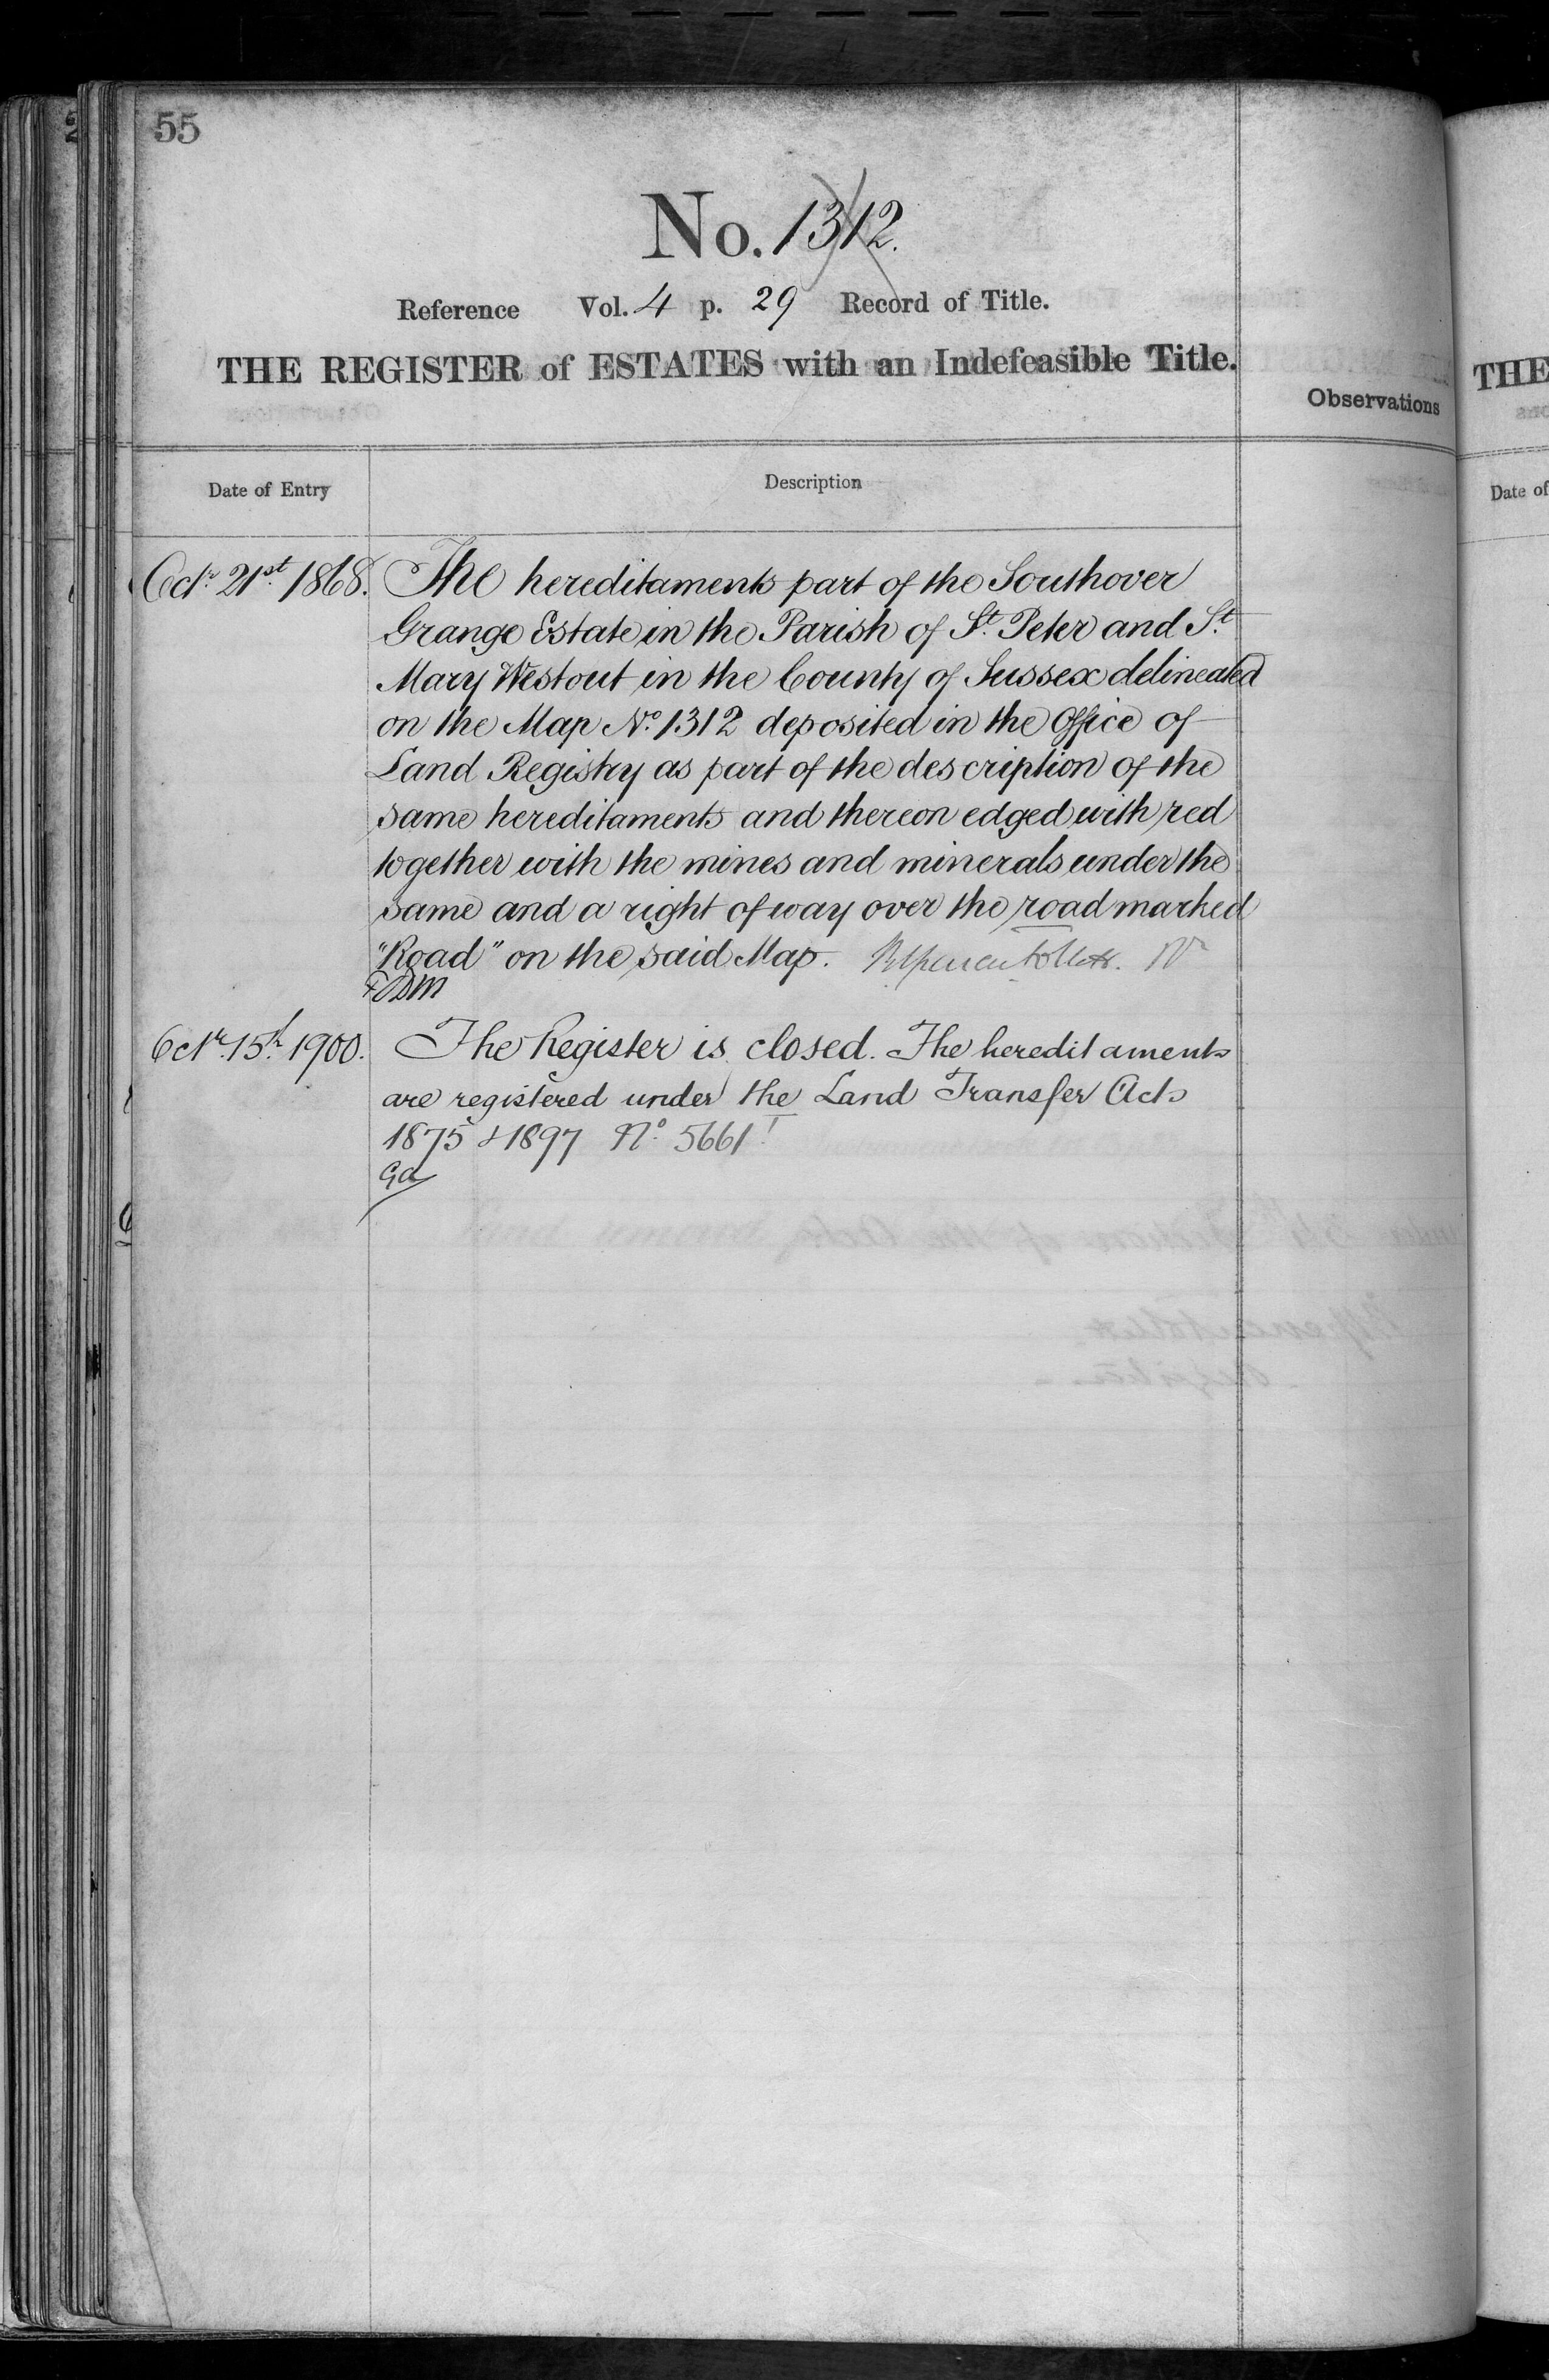 55
No. 1312.
Reference Vol. 4 p. 29 Record of Title.
THE REGISTER of ESTATES with an Indefeasible Title.
Observations
Date of Entry
Description
Octr. 21st. 1868. The hereditaments part of the Southover
Grange Estate in the Parish of St. Peter and St.
Mary Westout in the County of Sussex delineated
on the Map No. 1312 deposited in the Office of
Land Registry as part of the description of the
same hereditaments and thereon edged with red
together with the mines and minerals under the
same and a right of way over the road marked
"Road" on the said Map.
Octr. 15th. 1900. The Register is closed. The hereditaments
are registered under the Land Transfer Acts
1875 & 1897 No. 5661
THE
Date of